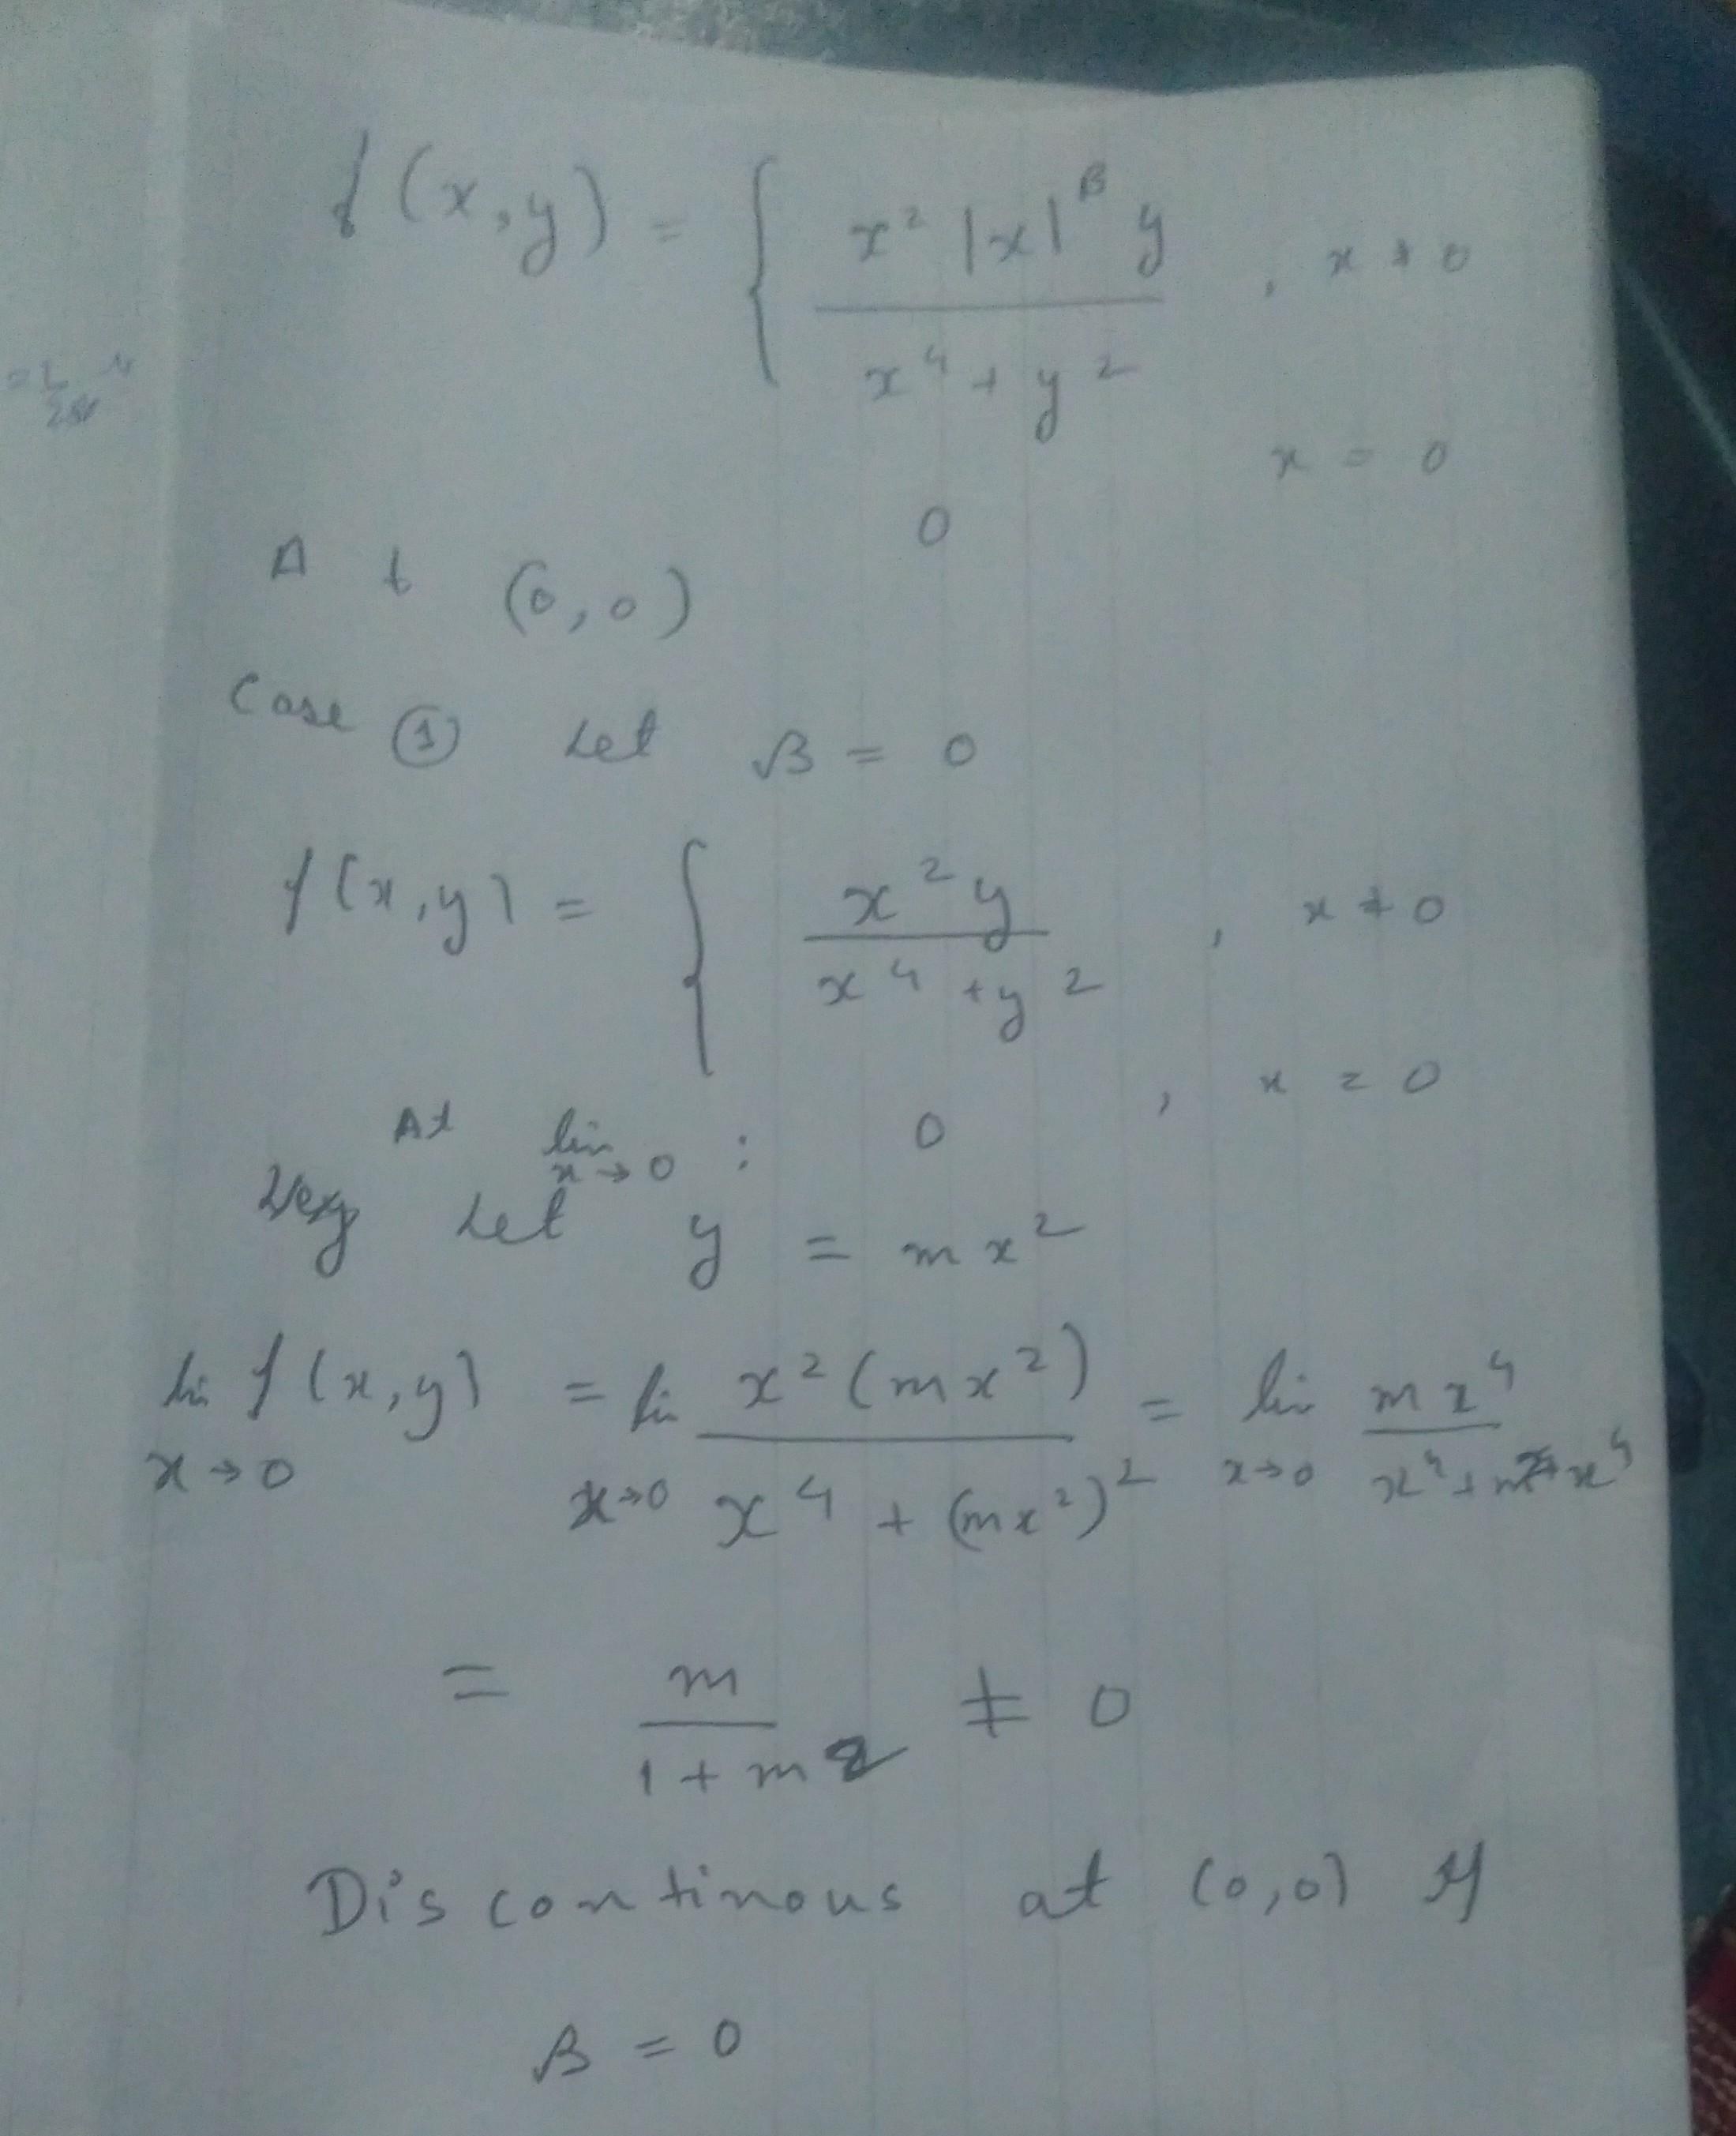 f(x,y) = { x² |x|^β y / x⁴ + y² , x ≠ 0
x = 0
0
At (0,0)
Case ① Let β = 0
f(x,y) = { x² y / x⁴ + y² , x ≠ 0
0 , x = 0
At lim x→0 :
Let y = mx²
lim x→0 f(x,y) = lim x→0 x²(mx²) / x⁴ + (mx²)² = lim x→0 mx⁴ / x⁴ + m²x⁴
= m / 1 + m2 ≠ 0
Discontinous at (0,0) if
β = 0